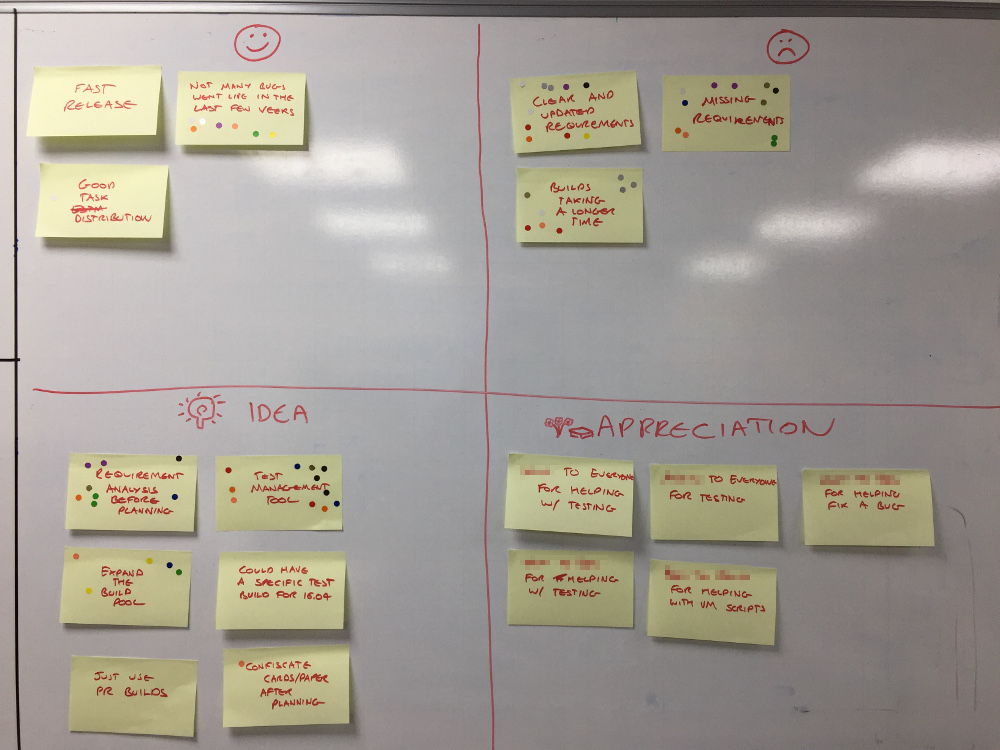 FAST
RELEASE
NOT MANY BUGS
WENT LIVE IN THE
LAST FEW VEERS
GOOD
TASK
DISTRIBUTION
CLEAR AND
UPDATED
REQUREMENTS
MISSING
REQUIREMENTS
BUILDS
TAKING
A LONGER
TIME
IDEA
REQUIREMENT
ANALYSIS
BEFORE
PLANNING
TEST
MANAGEMENT
POOL
EXPAND
THE
BUILD
POOL
COULD HAVE
A SPECIFIC TEST
BUILD FOR 16.04
JUST USE
PR BUILDS
CONFISCATE
CARDS/PAPER
AFTER
PLANNING
APPRECIATION
TO EVERYONE
FOR HELPING
W/ TESTING
TO EVERYONE
FOR TESTING
FOR HELPING
FIX A BUG
FOR HELPING
W/ TESTING
FOR HELPING
WITH VM SCRIPTS